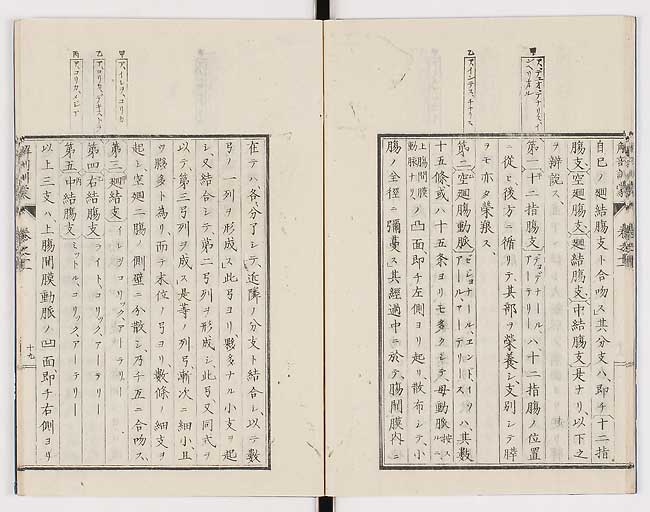 甲
アデュオデナリス、イ
ンヘリオル
乙
アインテスチナリス
自己ノ廻結腸支ト合吻ス其分支ハ、即チ十二指
腸支空廻腸支廻結腸支中結腸支是ナリ、以下之
ヲ辨說ス、
第一十二指腸支デュオデナール、ハ十二指腸ノ位置
ニ從ヒ後方ニ循リテ、其部ヲ榮養シ支別シテ膵
ヲモ亦タ榮養ス、
第二空廻腸動脈ゼジュナール、エンド、イリアールアーテリースハ、其數
十五條或ハ十五条ヨリモ多クシテ母動脈按スルニ、上腸間膜動脈ナリノ凹面、即チ左側ヨリ起リ、散布シテ、小
腸ノ全徑ニ彌蔓ス其經過中ニ於テ腸間膜内ニ
甲
アイレヲ、コリカ
乙
アコリカ、デキストラ
丙
アコリカ、メヂア
在テハ各、分レシテ、近隣ノ分支ト結合シ、以テ數
弓ノ一列ヲ形成ス此弓ヨリ夥多ナル小支ヲ起
シ又結合シテ、第二弓列ヲ形成シ、此弓、又同式ヲ
以テ、第三弓列ヲ成ス是等ノ列弓、漸次ニ細小且
ツ夥多ト為リ、而テ末位ノ弓ヨリ、數條ノ細支ヲ
起シ空廻二腸ノ側壁ニ分散シ乃チ互ニ合吻ス、
第三廻結支イレヲコリック、アーテリー
第四右結腸支ライト、コリック、アーテリー
第五中結腸支ミットル、コリック、アーテリー
以上三支ハ、上腸間膜動脈ノ凹面、即チ右側ヨリ
解剖訓蒙
卷之十一
十九